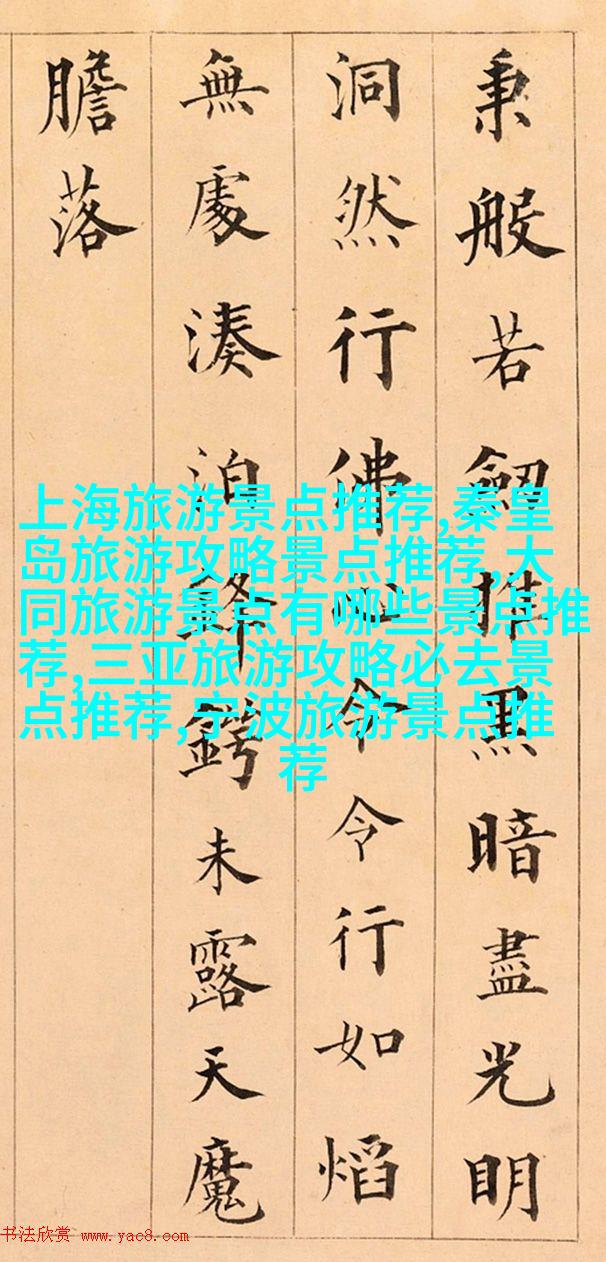 秉般若劒推黑暗盡光明
洞然行佛心令令行如熖
無處湊泊鋒鍔未露天魔
膽落
上海旅游景点推荐,秦皇
岛旅游攻略景点推荐,大
同旅游景点有哪些景点推
荐,三亚旅游攻略必去景
点推荐,宁波旅游景点推
荐
书法欣赏 www.yac8.com